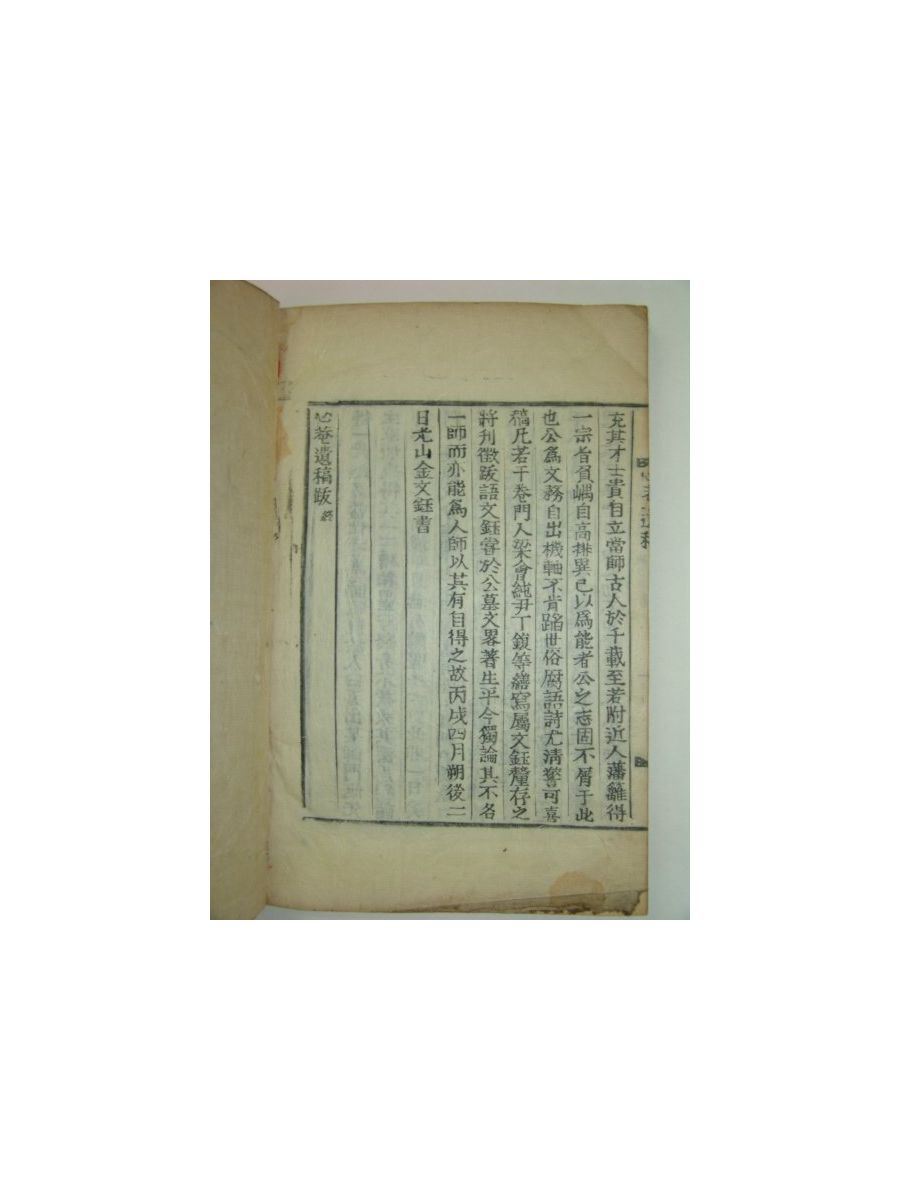 充其才士貴自立當師古人於千載至若附近人藩籬得
一宗旨負嵎自高排異己以爲能者公之志固不屑于此
也公爲文務自出機軸不肯蹈世俗腐語詩尤淸警可喜
稿凡若干卷門人梁會純尹丁鎪等繕寫屬文鈺釐存之
將刋徵跋語文鈺嘗於公墓文畧著生平今獨論其不名
一師而亦能爲人師以其有自得之故丙戌四月朔後二
日光山金文鈺書
心菴遺稿跋 終